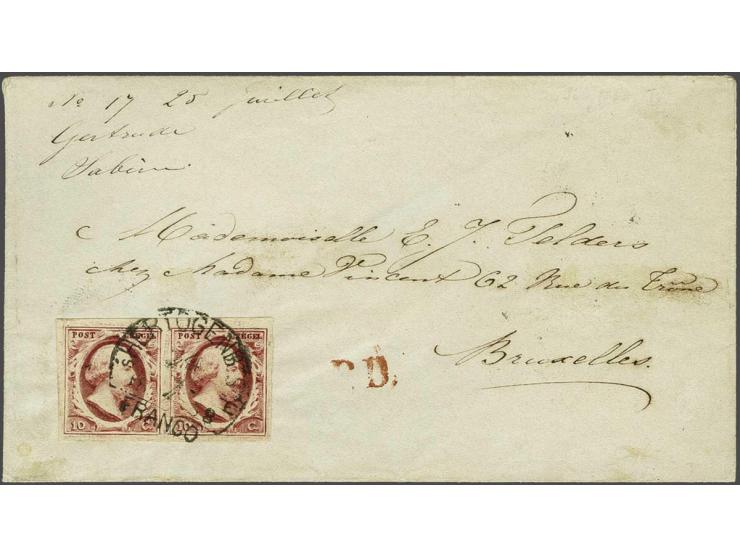 No 17 25 Juillet
Gertrude
Sabine
Mademoiselle E. J. Telders
chez Madame Vincent 62 Rue du Trône
Bruxelles.
POSTZEGEL POSTZEGEL
10 C 10 C
'S HERTOGENBOSCH
FRANCO
P.D.